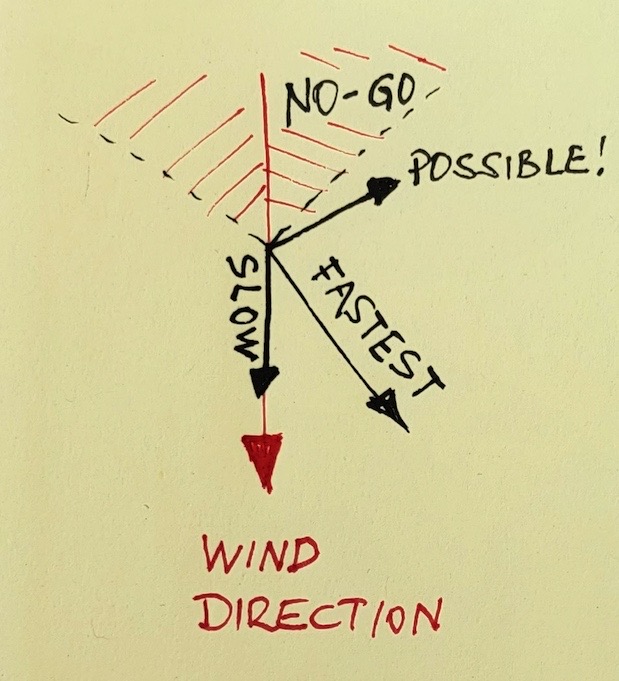 NO-GO
POSSIBLE!
SLOW
FASTEST
WIND
DIRECTION